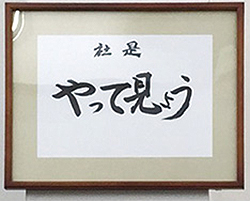 社是
やって見よう